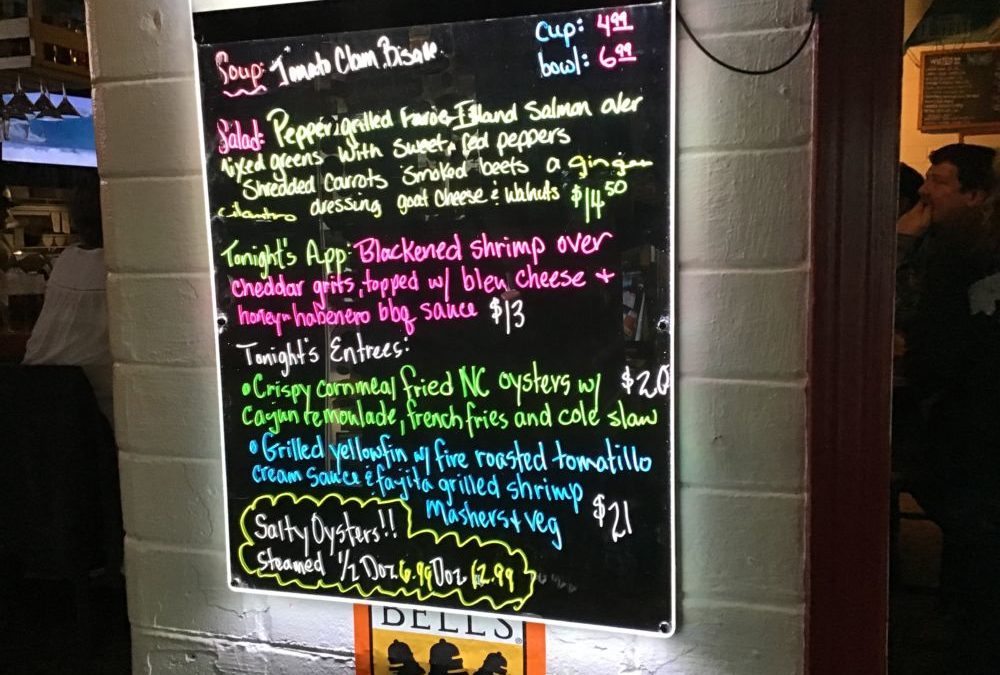 Soup: Tomato Clam Bisque
Cup: 4.99
bowl: 6.99
Salad: Pepper grilled Faroe Island Salmon over
mixed greens with sweet, red peppers
Shredded Carrots Smoked beets a ginger
cilantro dressing goat cheese & walnuts $14.50
Tonight's App: Blackened shrimp over
cheddar grits, topped w/ bleu cheese +
honey-habenero bbq sauce $13
Tonight's Entrees:
• Crispy cornmeal fried NC oysters w/ $20
Cajun remoulade, french fries and cole slaw
• Grilled yellowfin w/ fire roasted tomatillo
cream sauce & fajita grilled shrimp
Mashers + veg $21
Salty Oysters!!
Steamed 1/2 Doz 6.99 Doz 12.99
BELL'S